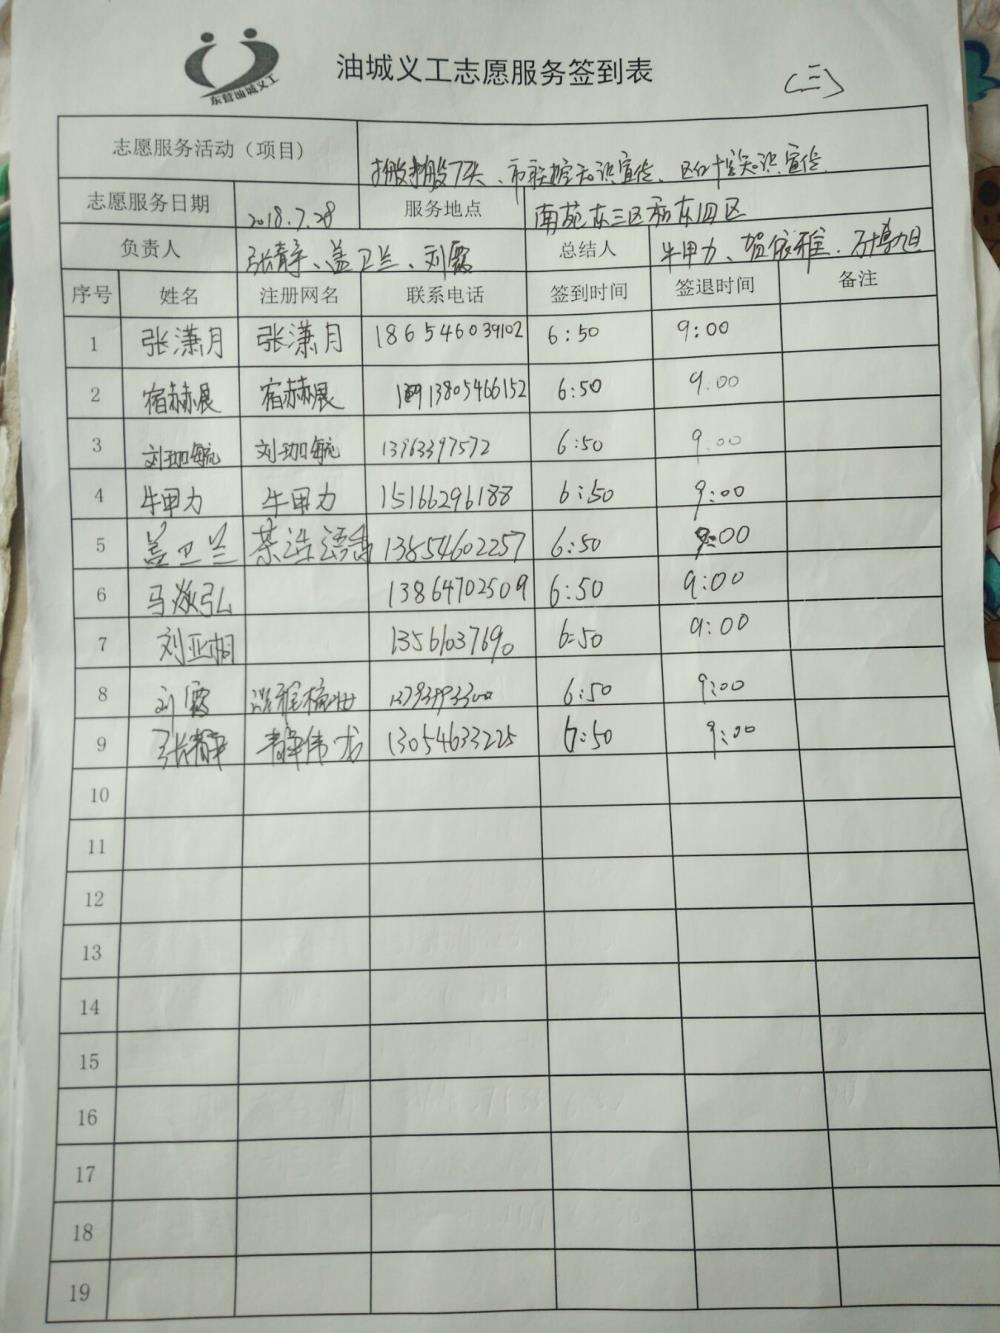 东营油城义工
油城义工志愿服务签到表
(三)
志愿服务活动（项目）
志愿服务日期 2018.7.28 服务地点 南苑东三区和东四区
负责人 张静、盖卫兰、刘霞 总结人 牛甲力、贺依雅、
序号 姓名 注册网名 联系电话 签到时间 签退时间 备注
1 张潇月 张潇月 186546039102 6:50 9:00
2 宿赫展 宿赫展 13805466152 6:50 9.00
3 刘珈毓 刘珈毓 13963397572 6:50 9.00
4 牛甲力 牛甲力 15166296188 6:50 9:00
5 盖卫兰 13854602257 6:50 9:00
6 马焱弘 13864702509 6:50 9:00
7 刘亚桐 13561037690 6:50 9:00
8 刘霞 6:50 9:00
9 张静 13054633225 6:50 9:00
10
11
12
13
14
15
16
17
18
19